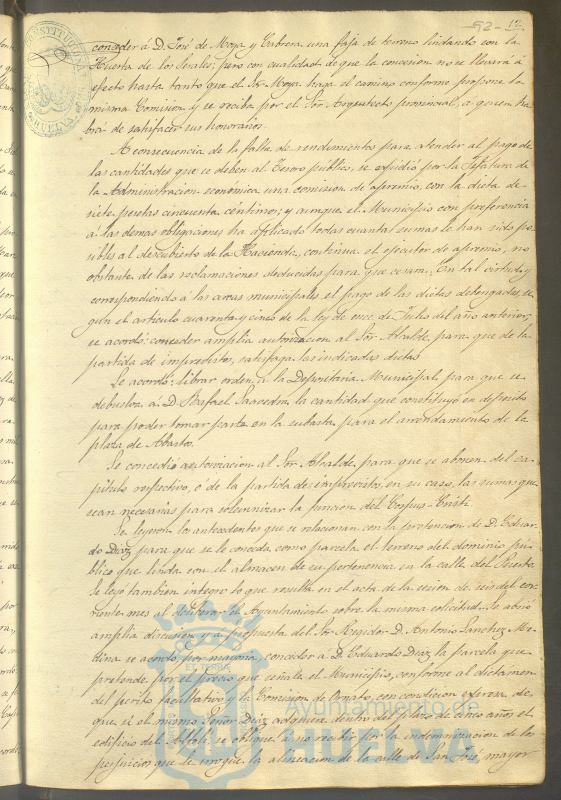 -92- 12
conceder á D. José de Moya y Cabrera una faja de terreno lindando con la
Huerta de los Perales; pero con cualidad de que la concesion no se llevará á
efecto hasta tanto que el Sor Moya haga el camino conforme propone la
misma Comision y se reciba por el Sor Arquitecto provincial, a quien ha-
brá de satisfacer sus honorarios.
A consecuencia de la falta de rendimientos para atender al pago de
las cantidades que se deben al Tesoro público, se espidió por la Jefatura de
la Administracion economica una comision de apremio, con la dieta de
siete pesetas cincuenta céntimos; y aunque el Municipio con preferencia
a las demas obligaciones ha aplicado todas cuantas sumas le han sido po-
sibles al descubierto de la Hacienda, continua el ejecutor de apremio, no
obstante de las reclamaciones deducidas para que cesara. En tal virtud, y
correspondiendo á las arcas municipales el pago de las dietas debengadas, se-
gun el articulo cuarenta y cinco de la ley de once de Julio del año anterior,
se acordó: conceder amplia autorizacion al Sor Alcalde, para que de la
partida de imprevistos, satisfaga las indicadas dietas.
Se acordó: librar orden, a la Depositaria Municipal para que se
debuelva á D. Rafael Saavedra, la cantidad que constituyó en deposito
para poder tomar parte en la subasta para el arrendamiento de la
plaza de Abastos.
Se concedió autorizacion al Sor Alcalde, para que se abonen del ca-
pitulo respectivo, ó de la partida de imprevistos, en su caso, las sumas que
sean necesarias para solemnizar la funcion del Corpus-Cristi.
Se leyeron los antecedentes que se relacionan con la pretencion de D. Eduar-
do Diaz para que se le conceda como parcela el terreno del dominio pú-
blico que linda con el almacen de su pertenencia en la calle del Puerto.
Se leyó tambien integro lo que resulta en el acta de la sesion de seis del cor-
riente mes al deliberar el Ayuntamiento sobre la misma solicitud. Se abrió
amplia discusion y a propuesta del Sor Regidor D. Antonio Sanchez Me-
dina se acordó, por mayoria, conceder á D. Eduardo Diaz la parcela que
pretende por el precio que señale el Municipio, conforme al dictámen
del perito facultativo y la Comision de Ornato, con condicion espresa de
que si el mismo Señor Diaz adquiere dentro del plazo de cinco años el
edificio del se obligue a no recibir por la indemnizacion de los
perjuicios que le irrogue la alineacion de la calle de San José, mayor
Ayuntamiento de
HUELVA